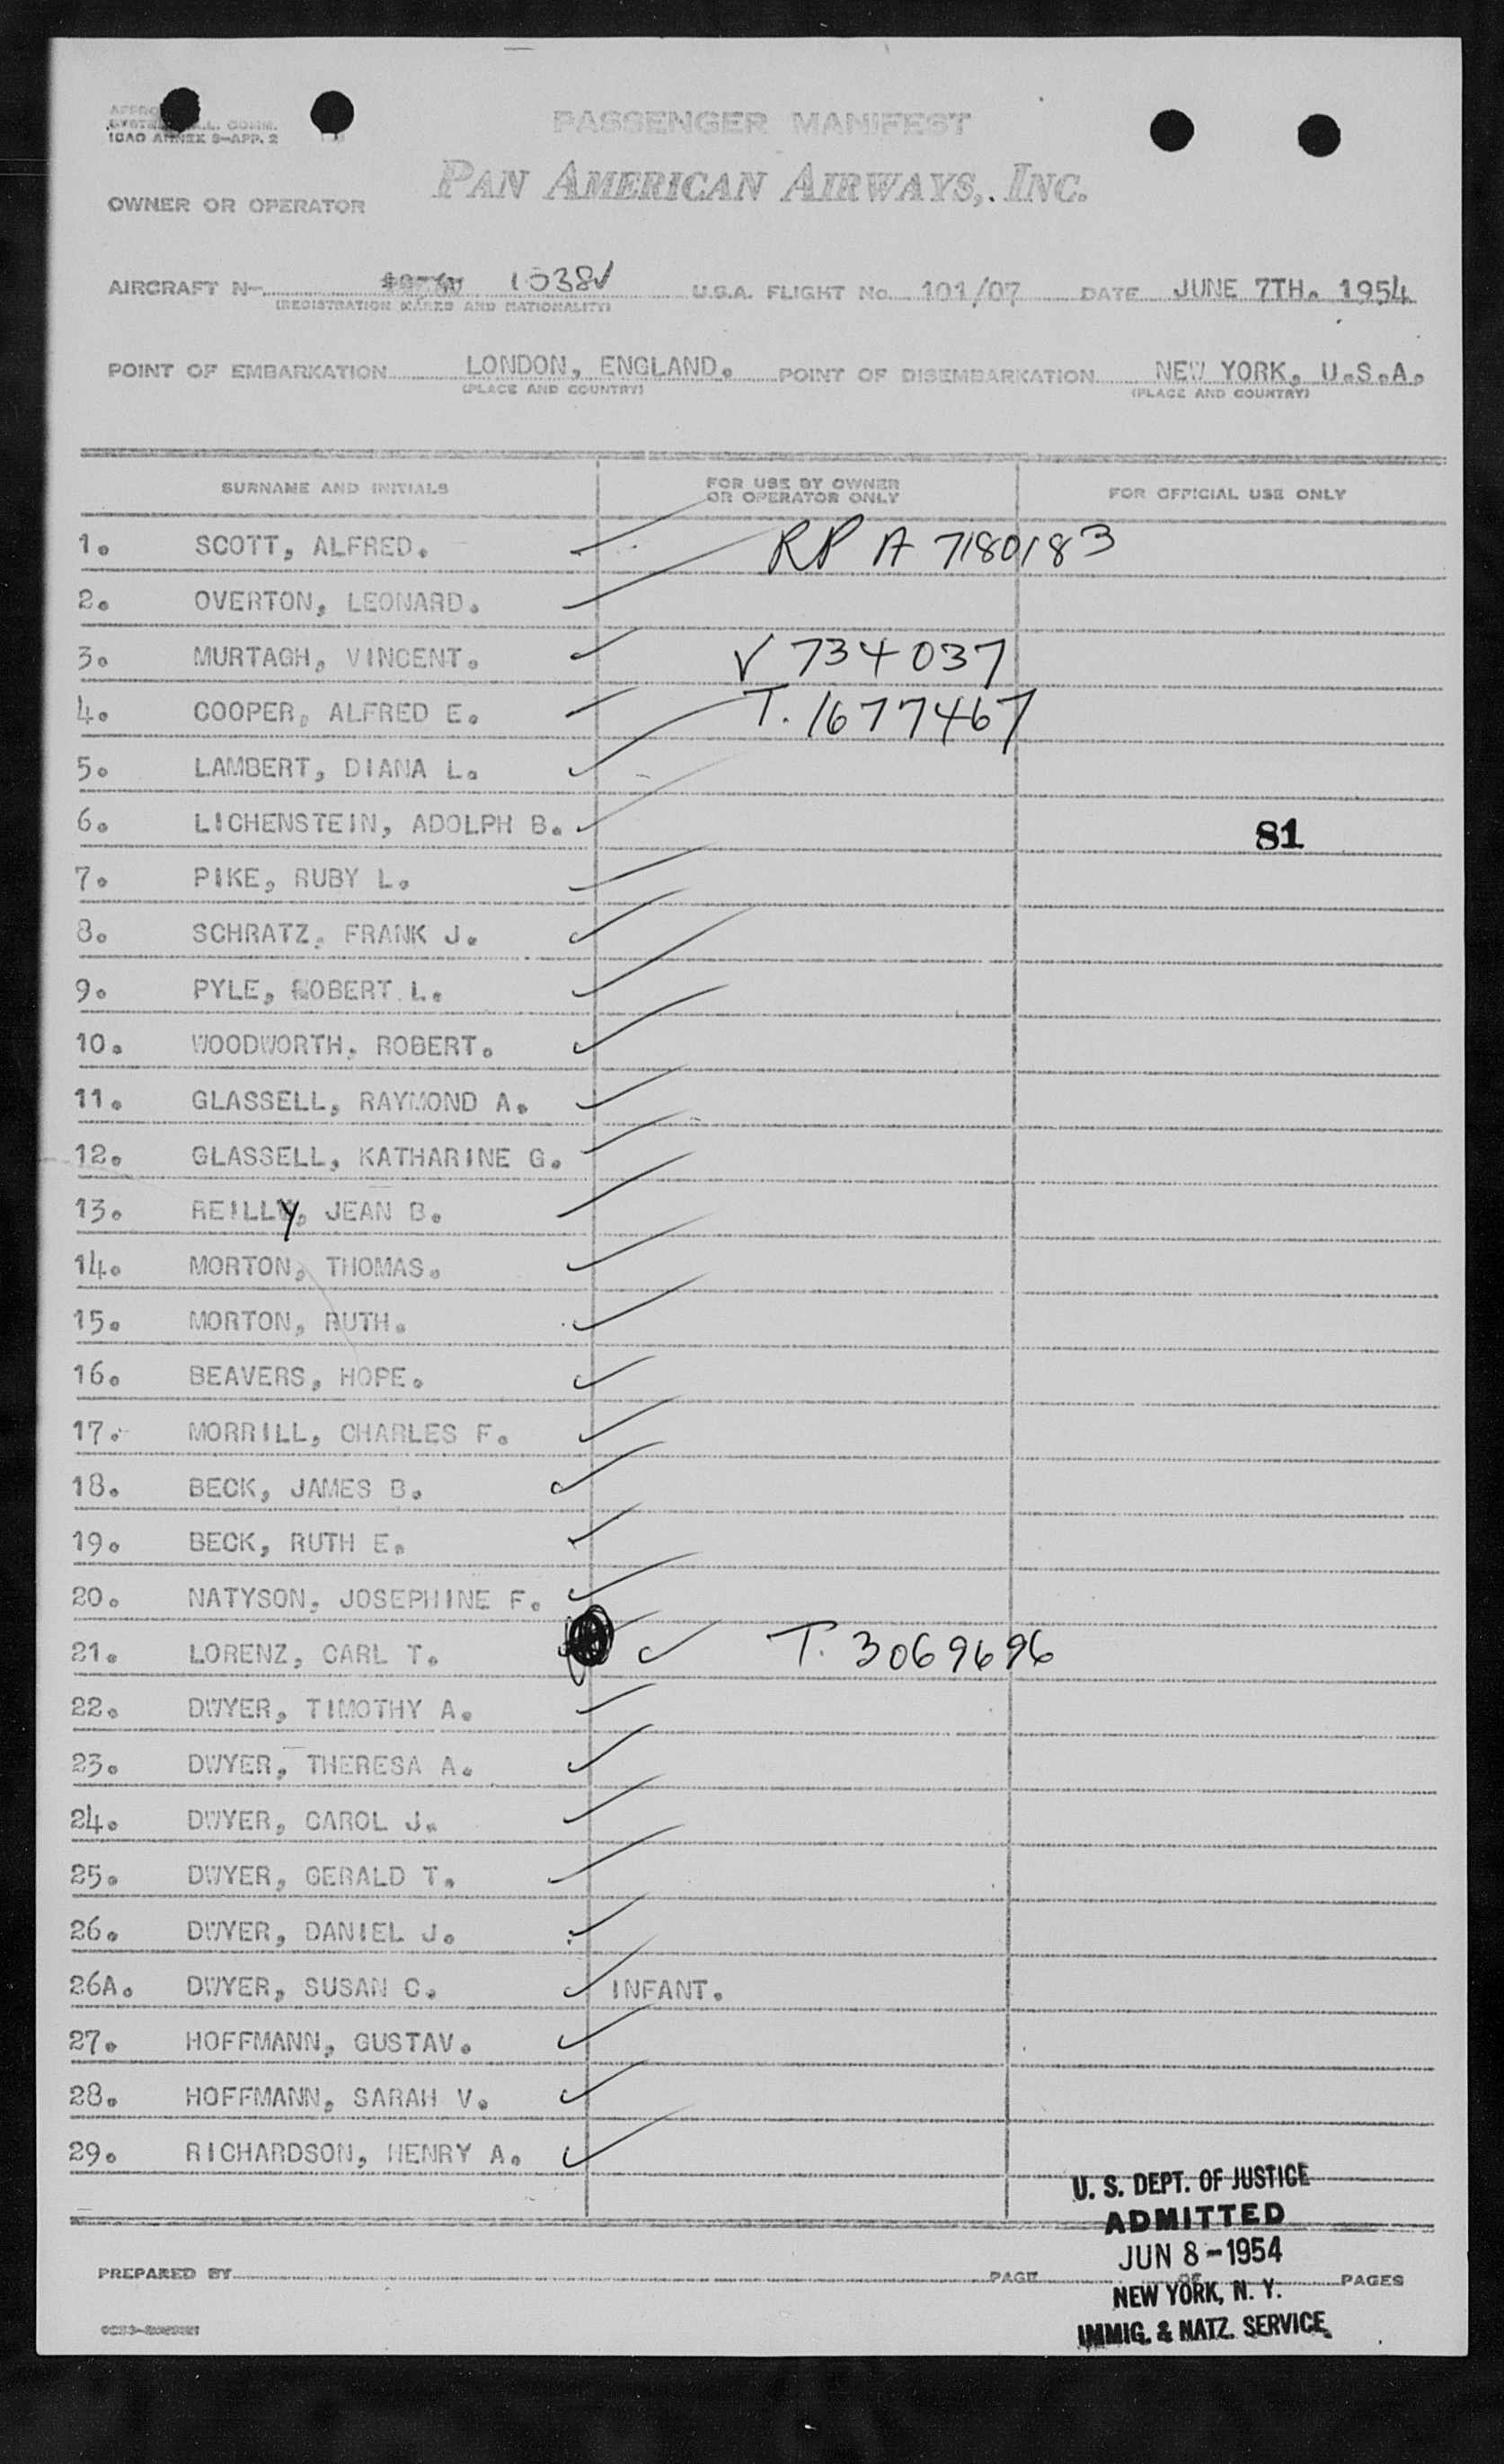 PASSENGER MANIFEST
ICAO ANNEX 9-APP. 2
PAN AMERICAN AIRWAYS, INC.
OWNER OR OPERATOR
AIRCRAFT N- 1038V U.S.A. FLIGHT No. 101/07 DATE JUNE 7TH. 1954
(REGISTRATION MARKS AND NATIONALITY)
POINT OF EMBARKATION LONDON, ENGLAND. POINT OF DISEMBARKATION NEW YORK, U.S.A.
(PLACE AND COUNTRY) (PLACE AND COUNTRY)
SURNAME AND INITIALS FOR USE BY OWNER OR OPERATOR ONLY FOR OFFICIAL USE ONLY
1. SCOTT, ALFRED. RP A 7180183
2. OVERTON, LEONARD.
3. MURTAGH, VINCENT. V 734037
4. COOPER, ALFRED E. T. 1677467
5. LAMBERT, DIANA L.
6. LICHENSTEIN, ADOLPH B. 81
7. PIKE, RUBY L.
8. SCHRATZ, FRANK J.
9. PYLE, ROBERT L.
10. WOODWORTH, ROBERT.
11. GLASSELL, RAYMOND A.
12. GLASSELL, KATHARINE G.
13. REILLY, JEAN B.
14. MORTON, THOMAS.
15. MORTON, RUTH.
16. BEAVERS, HOPE.
17. MORRILL, CHARLES F.
18. BECK, JAMES B.
19. BECK, RUTH E.
20. NATYSON, JOSEPHINE F.
21. LORENZ, CARL T. T. 3069696
22. DWYER, TIMOTHY A.
23. DWYER, THERESA A.
24. DWYER, CAROL J.
25. DWYER, GERALD T.
26. DWYER, DANIEL J.
26A. DWYER, SUSAN C. INFANT.
27. HOFFMANN, GUSTAV.
28. HOFFMANN, SARAH V.
29. RICHARDSON, HENRY A.
U. S. DEPT. OF JUSTICE
ADMITTED
JUN 8-1954
PREPARED BY PAGE OF PAGES
NEW YORK, N. Y.
IMMIG. & NATZ. SERVICE